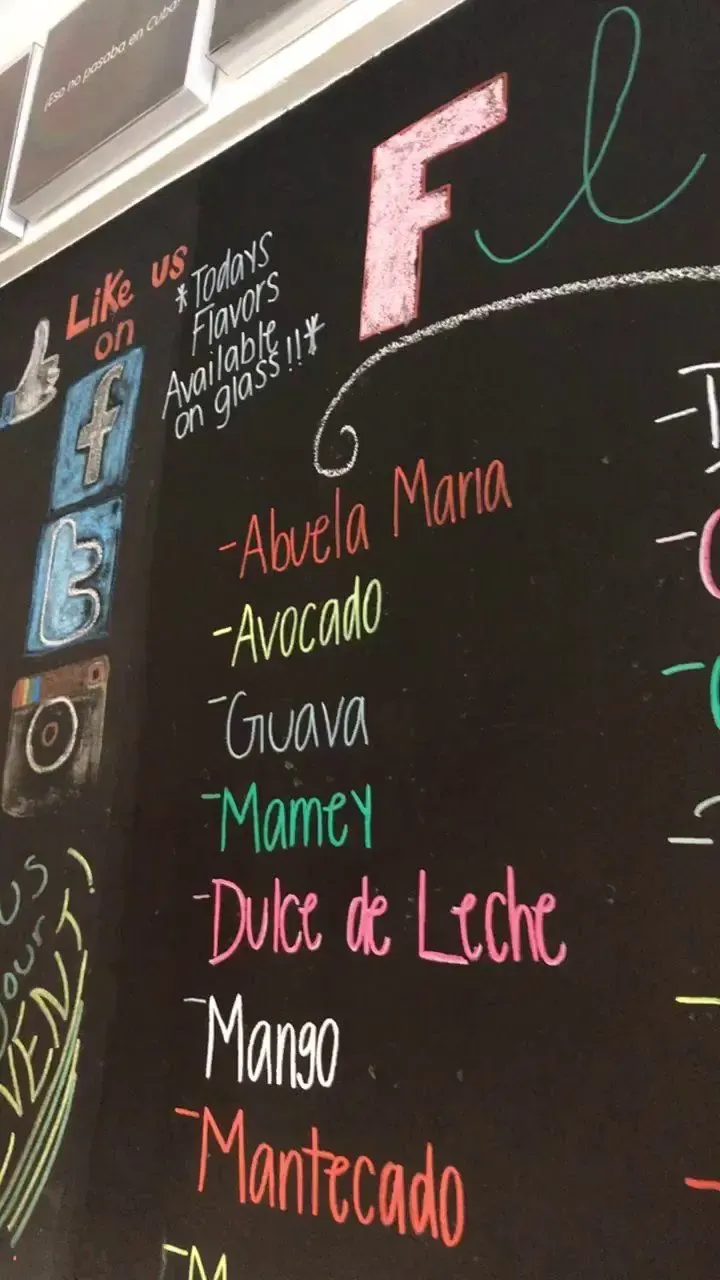 ¡Eso no pasaba en Cuba!
Fl
Like us
on
*Todays
Flavors
Available
on glass!!*
f
t
-Abuela Maria
-Avocado
-Guava
-Mamey
-Dulce de Leche
-Mango
-Mantecado
-M
us
your
VENT!